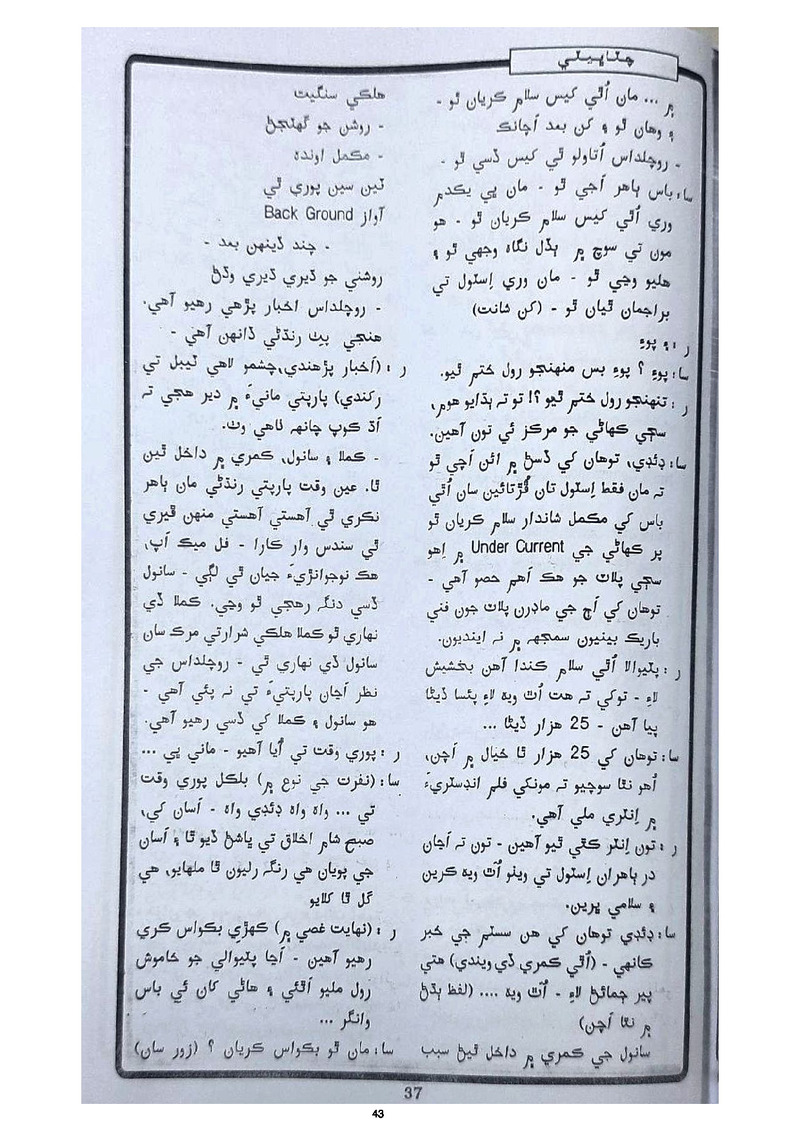 چٽاڀيٽي
۾ ... مان اُٿي کيس سلام ڪريان ٿو -
۽ وهان ٿو ۽ کن بعد اَچانڪ
- روچلداس اُتاولو ٿي کيس ڏسي ٿو -
سا: باس ٻاهر اَچي ٿو - مان پي يڪدم
وري اُٿي کيس سلام ڪريان ٿو - هو
مون تي سوچ ۾ ٻڏل نگاه وجهي ٿو ۽
هليو وڃي ٿو - مان وري اِسٽول تي
براجمان ٿيان ٿو - (کن شانت)
ر : ۽ پوءِ
سا: پوءِ ؟ پوءِ بس منهنجو رول ختم ٿيو.
ر : تنهنجو رول ختم ٿيو ؟! تو ته ٻڌايو هوم،
سڄي ڪهاڻي جو مرڪز ئي تون آهين.
سا: ڊئڊي، توهان کي ڏسڻ ۾ ائن اَچي ٿو
ته مان فقط اِسٽول تان ڦُڙتائين سان اُٿي
باس کي مڪمل شاندار سلام ڪريان ٿو
پر ڪهاڻي جي Under Current ۾ اِهو
سڄي پلاٽ جو هڪ اَهم حصو آهي -
توهان کي اَڄ جي ماڊرن پلاٽ جون فني
باريڪ بينيون سمجهه ۾ نه اينديون.
ر : پٽيوالا اُٿي سلام ڪندا آهن بخشيش
لاءِ - توکي ته هت اُٿ ويه لاءِ پئسا ڏيڻا
پيا آهن - 25 هزار ڏيڻا ...
سا: توهان کي 25 هزار ٿا خيال ۾ اَچن،
اُهو نٿا سوچيو ته مونکي فلم انڊسٽريءَ
۾ اِنٽري ملي آهي.
ر : تون اِنٽر ڪٿي ٿيو آهين - تون ته اَڃان
در ٻاهران اِسٽول تي ويٺو اُٿ ويه ڪرين
۽ سلامي ڀرين.
سا: ڊئڊي توهان کي هن سسٽم جي خبر
ڪانهي - (اُٿي ڪمري ڏي ويندي) هتي
پير ڄمائڻ لاءِ - اُٿ ويه .... (لفظ ٻڌڻ
۾ نٿا اَچن)
سانول جي ڪمري ۾ داخل ٿيڻ سبب
هلڪي سنگيت
- روشن جو گهٽجڻ
- مڪمل اونده
ٽين سين پوري ٿي
آواز Back Ground
- چند ڏينهن بعد -
روشني جو ڏيري ڏيري وڌڻ
- روچلداس اخبار پڙهي رهيو آهي.
هنجي پٺ رنڌڻي ڏانهن آهي -
ر : (اَخبار پڙهندي، چشمو لاهي ٽيبل تي
رکندي) پارپتي مانيءَ ۾ دير هجي ته
اَڌ ڪوپ چانهه ٺاهي وٺ.
- ڪملا ۽ سانول، ڪمري ۾ داخل ٿين
ٿا. عين وقت پارپتي رنڌڻي مان ٻاهر
نڪري ٿي آهستي آهستي منهن ڦيري
ٿي سندس وار ڪارا - فل ميڪ اَپ،
هڪ نوجوانڙيءَ جيان ٿي لڳي - سانول
ڏسي دنگہ رهجي ٿو وڃي. ڪملا ڏي
نهاري ٿو ڪملا هلڪي شرارتي مرڪ سان
سانول ڏي نهاري ٿي - روچلداس جي
نظر اَڃان پارپتيءَ تي نہ پئي آهي -
هو سانول ۽ ڪملا کي ڏسي رهيو آهي.
ر : پوري وقت تي اُيا آهيو - ماني پي ...
سا: (نفرت جي نوع ۾) بلڪل پوري وقت
تي ... واه واه ڊئڊي واه - اَسان کي،
صبح شام اخلاق تي ڀاشڻ ڏيو ٿا ۽ اَسان
جي پويان هي رنگہ رليون ٿا ملهايو، هي
گل ٿا کلايو
ر : (نهايت غصي ۾) ڪهڙي بڪواس ڪري
رهيو آهين - اَڃا پٽيوالي جو خاموش
رول مليو اَٿئي ۽ هاڻي کان ئي باس
وانگر ...
سا: مان ٿو بڪواس ڪريان ؟ (زور سان)
37
43